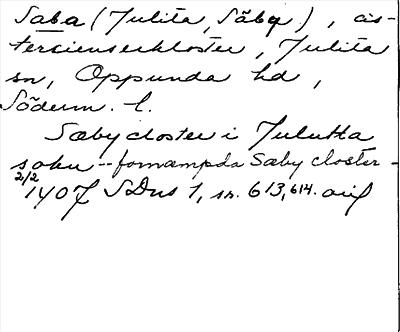 Saba (Julita, Säby), cis-
tercienserkloster, Julita
sn, Oppunda hd,
Söderm. l.
Sæby closter i Julutta
sokn -- fornæmpda Sæby closter -
2/2 1407 SDns 1, sn. 613, 614. avs